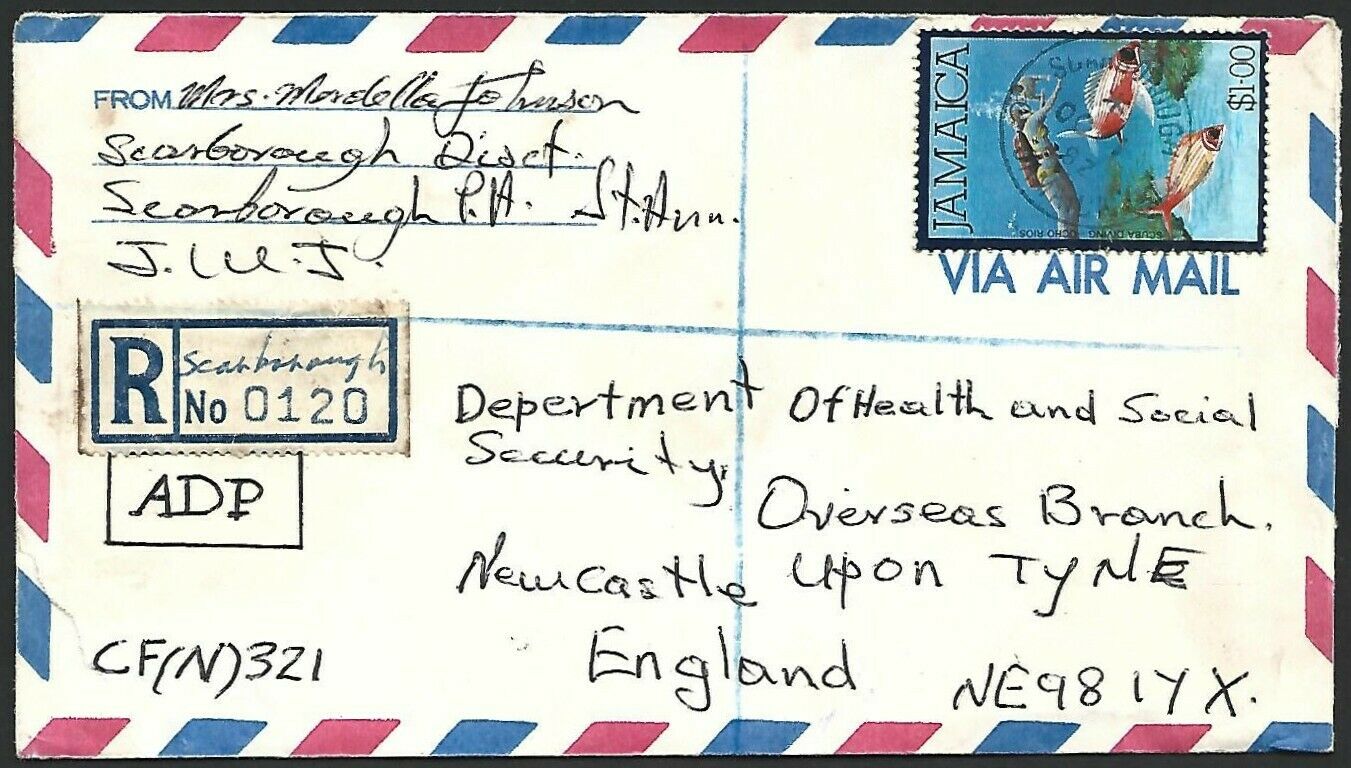 FROM Mrs. Mordella Johnson
Scarborough Disct.
Scarborough P.A. St. Ann.
J.W.I.
JAMAICA
$1.00
SCUBA DIVING OCHO RIOS
VIA AIR MAIL
R
Scarborough
No 0120
ADP
CF(N)321
Depertment Of Health and Social
Security,
Overseas Branch.
Newcastle upon TyNE
England
NE98 1YX.